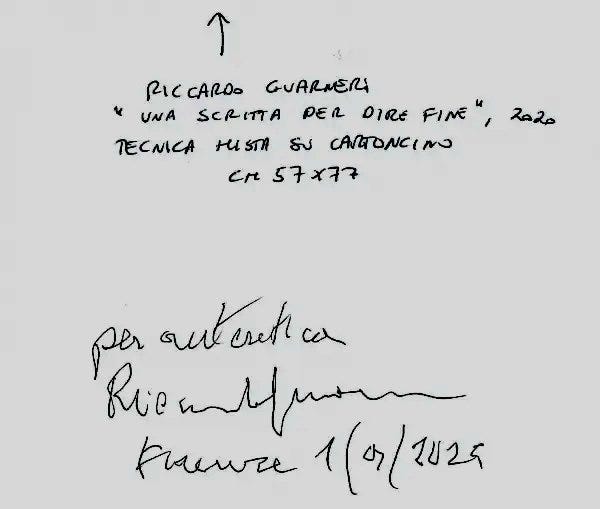 RICCARDO GUARNERI
"UNA SCRITTA PER DIRE FINE", 2020
TECNICA MISTA SU CARTONCINO
CM 57x77
per autentica
Riccardo Guarneri
Firenze 1/